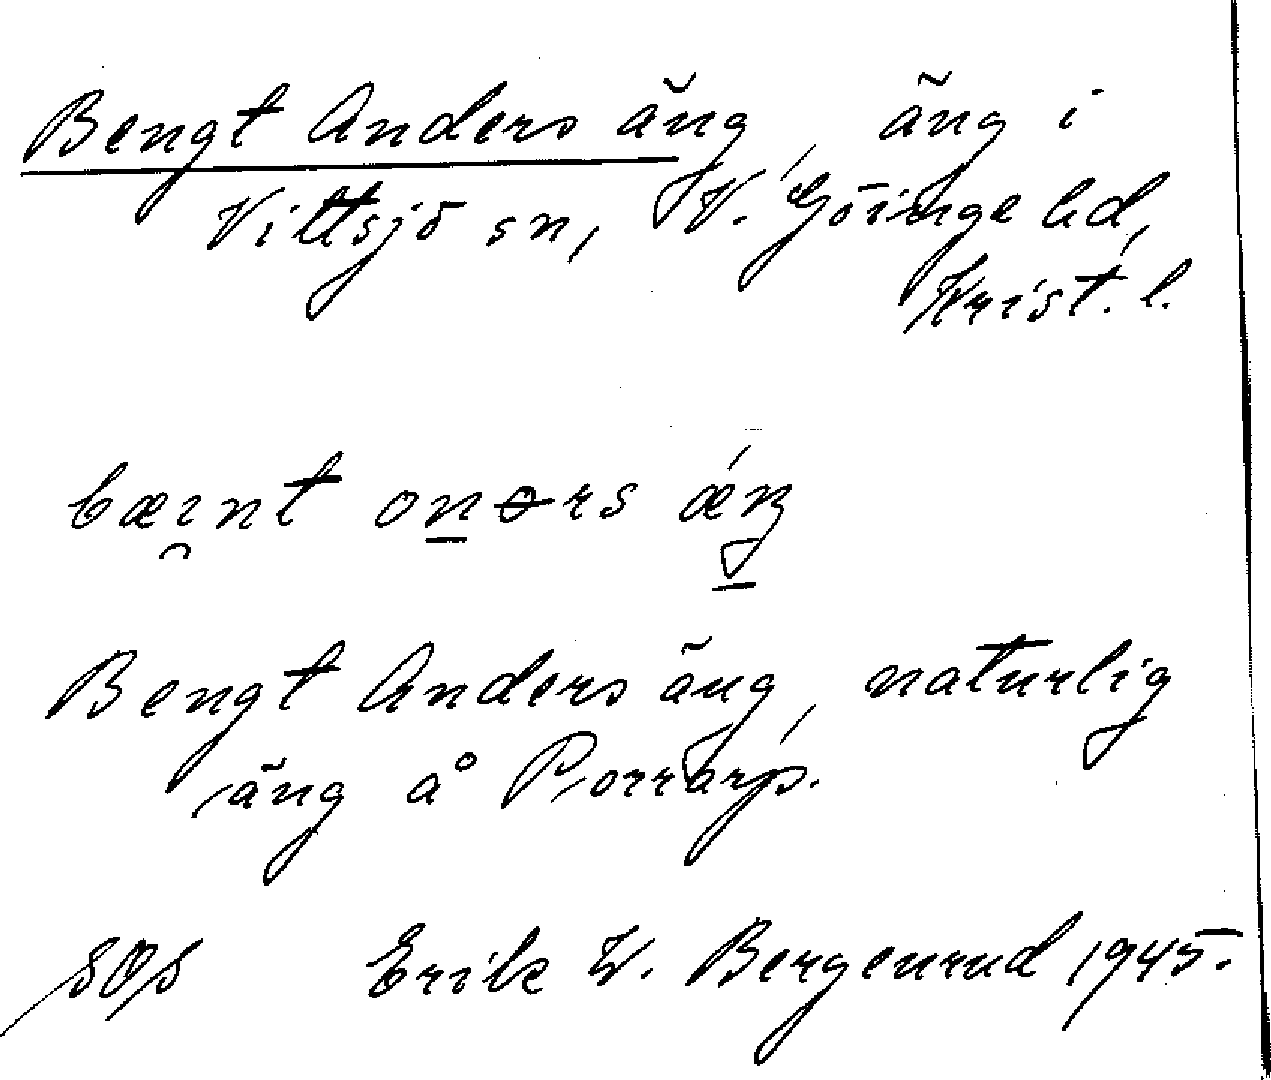 Bengt Anders äng, äng i
Vittsjö sn, V. Göinge hd,
Krist. l.
bæınt onɵrs ǽŋ
Bengt Anders äng, naturlig
äng å Porrarp.
SOS Erik W. Bergenrud 1945.